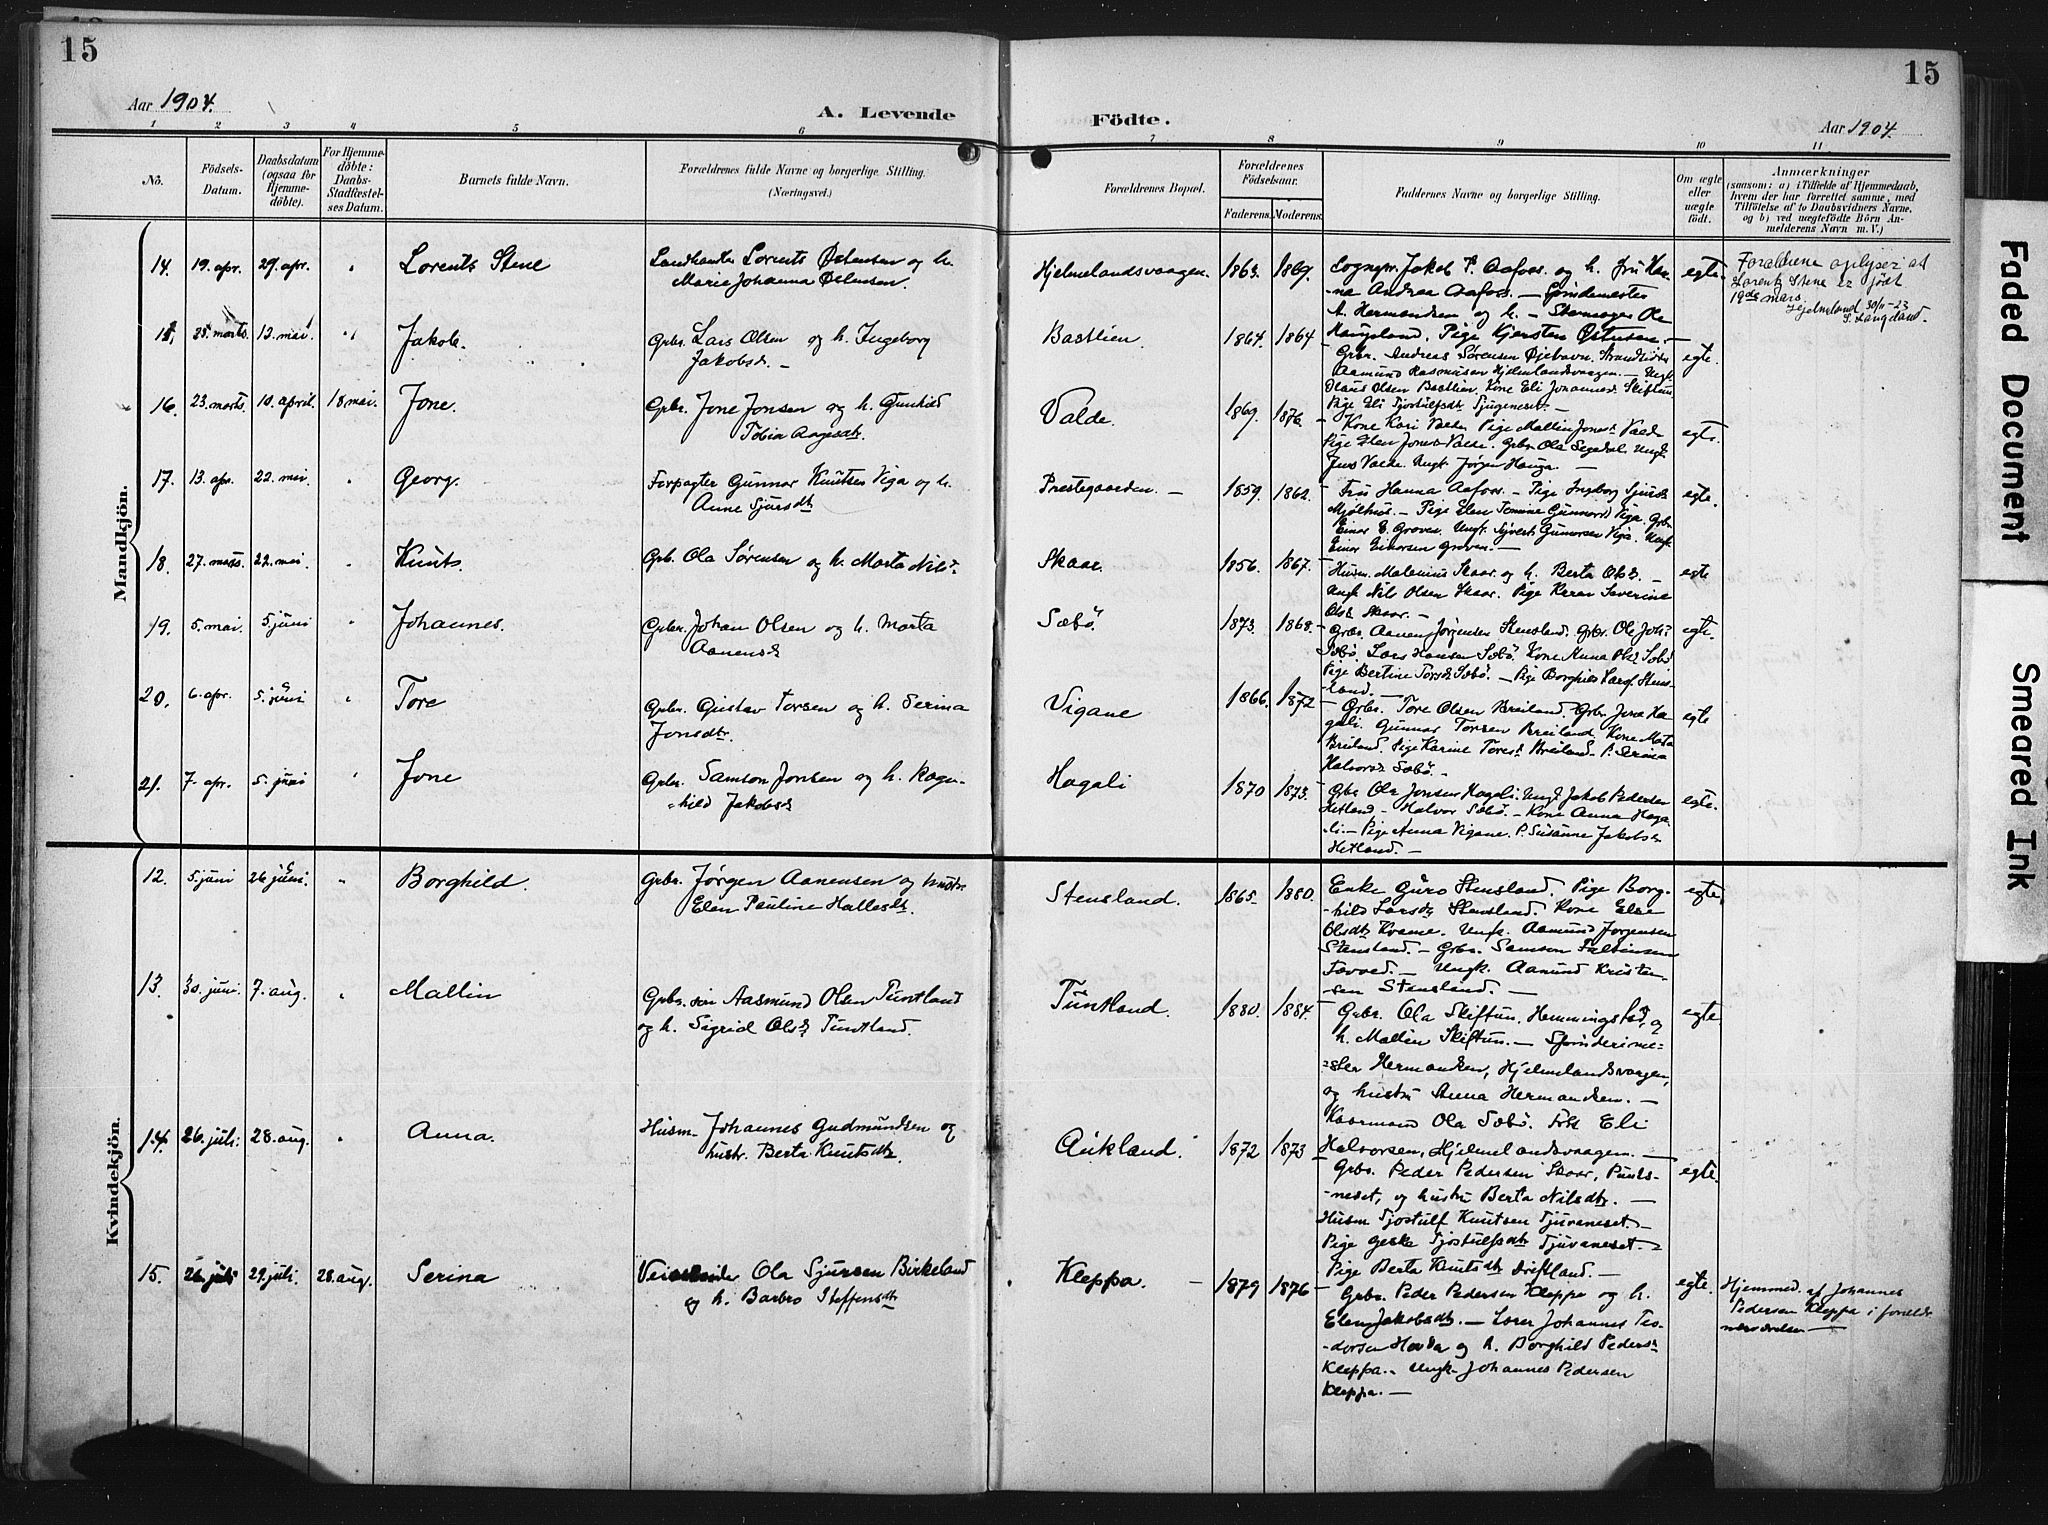 15
15
Aar 1904.
A. Levende
Födte.
Aar 1904.
1 2 3 4 5 6 7 8 9 10 11
No.
Födsels-Datum.
Daabsdatum (ogsaa for Hjemme-döbte).
For Hjemme-döbte: Daabs-Stadfæstel-ses Datum.
Barnets fulde Navn.
Forældrenes fulde Navne og borgerlige Stilling.
(Næringsvei.)
Forældrenes Bopæl.
Forældrenes Födselsaar.
Faderens. Moderens.
Faddernes Navne og borgerlige Stilling.
Om ægte eller uægte födt.
Anmærkninger
(saasom: a) i Tilfælde af Hjemmedaab,
hvem der har forrettet samme, med
Tilföielse af to Daabsvidners Navne,
og b) ved uægtefödte Börn An-
melderens Navn m. V.)
Mandkjön.
14. 19. apr. 29. apr. Lorents Stene
Lorents Østensen og h.
Marie Johanna Østensen.
Hjelmelandsvaagen. 1863. 1869.
Sognepr. Jakob P. Aafoss. og h. Fru Han-
-na Andrea Aafoss. —
A. Hermandsen og h. —
Haugeland. Pige Kjersten Østensen. —
egte.
Forældrene oplyser at
Lorentz Stene er født
19de mars.
Hjelmeland 30/11-23
S. Langeland.
15. 25. marts. 13. mai. Jakob.
Grbr. Lars Olsen og h. Ingeborg
Jakobsd. —
Bastlien 1864. 1864
Grbr. Andreas Sørensen Øiehavn.
Aamund Rasmussen Hjelmelandsvaagen. — Ungk.
Olaus Olsen Bastlien, Kone Eli Johannesd. Skiftun.
Pige Eli Tjostulfsdtr.
egte.
16. 23. marts. 10. april. 18 mai. Jone.
Grbr. Jone Jonsen og h. Gunhild
Tobia Aagesdtr.
Valde. 1869. 1876.
Kone Kari Valde. Pige Mallin Jonesd. Valde
Pige Elen Jonesd. Valde. Grbr. Ola Segedal. Ungk.
Jens Valde. Ungk. Jørgen Hauga. —
egte.
17. 13. apr. 22. mai. Georg.
Forpagter Gunnar Knutsen Viga og h.
Anne Sjursdtr.
Prestegaarden. — 1859. 1862.
Fru Hanna Aafoss. — Pige Ingeborg Sjursd.
Mjølhus. — Pige Elen Tomine Gunnarsd. Viga. Grbr.
Einar E. Groven. Ungk. Sivert Gunnarsen Viga. Ungk.
Einar Einarsen Groven. —
egte.
18. 27. mars. 22. mai. Knut.
Grb. Ola Sørensen og h. Marta Nilsd.
Skaar. 1856. 1867.
Husm. Malenius Skaar. og h. Berta Olsd. —
Ungk. Nils Olsen Skaar. Pige Karen Severine
Olsd. Skaar. —
egte
19. 5. mai. 5. juni Johannes.
Grbr. Johan Olsen og h. Marta
Aanensd.
Sæbö. 1873. 1868.
Grbr. Aanen Jørgensen Stensland. Grbr. Ole Joh.
Sæbö. Lars Hansen Sæbö. Kone Anna Olsd. Sæbö
Pige Bertine Torsd. Sæbö. — Pige Borghild Larsd. Stens-
-land. —
egte.
20. 6. apr. 5. juni Tore
Grbr. Gustav Torsen og h. Serina
Jonsdtr.
Vigane 1866. 1872
Grbr. Tore Olsen Breiland. Grbr. Jone Ha-
gali. Gunnar Torsen Breiland. Kone Marta
Breiland. Pige Karine Toresd. Breiland. P. Serina
Halvorsd. Sæbö. —
egte
21. 7. apr. 5. juni Jone
Grbr. Samson Jonsen og h. Ragn-
-hild Jakobsd.
Hagali 1870 1873.
Grbr. Ola Jonsen Hagali. Ungk. Jakob Pedersen
Hetland — Halvor Sæbö. — Kone Anna Haga-
li. — Pige Anna Vigane. P. Susanne Jakobsd.
Hetland. —
egte.
Kvindekjön.
12. 5. juni 26 juni. Borghild.
Grbr. Jørgen Aanensen og hustr.
Elen Pauline Hallesdtr.
Stensland. 1865- 1880.
Enke Guro Stensland. Pige Borg-
-hild Larsd. Stensland. Kone Else
Olsdtr. Kvame. Ungk. Aamund Jorgensen
Stensland. — Grbr. Samson Falkensen
— Ungk. Aanund Kristen-
-sen Stensland. —
egte.
13. 30. juni. 7. aug. Mallin
Grbr. søn Aasmund Olsen Tuntland
og h. Sigrid Olsd. Tuntland.
Tuntland. 1880. 1884.
Grbr. Ola Skiftun, Hemmingstad, og
h. Mallin Skiftun. —
-ster Hermandsen, Hjelmelandsvaagen,
og hustru Anna Hermandsen. —
Ola Sæbö. Frk. Eli
Halvorsen, Hjelmelandsvaagen. —
egte
14. 26. juli. 28. aug. Anna.
Husm. Johannes Gudmundsen og
hustr. Berta Knutsdtr.
Aukland. 1872 1873
Grbr. Peder Pedersen Skaar, Puntsnes-
-neset, og hustru Berta Nilsdtr. —
Husm Tjostulf Knutsen Tjuvaneset. —
Pige Tjostulfsdtr. Tjuvaneset. —
Pige Berta Knutsdtr. —
egte.
15. 26. juli 29. juli. 28. aug. Serina
Ola Sjursen Birkeland
og h. Barbro Steffensdtr.
Kleppa. — 1879 1876
Grbr. Peder Pedersen Kleppa og h.
Elen Jakobsdtr. — Lærer Johannes Teo-
-dorsen Hovda og h. Borghild Pedersd.
Kleppa. Ungk. Johannes Pedersen
Kleppa. —
egte.
Hjemmed. af Johannes
Pedersen Kleppa i foreldr.
nærværelse —
Faded Document
Smeared Ink